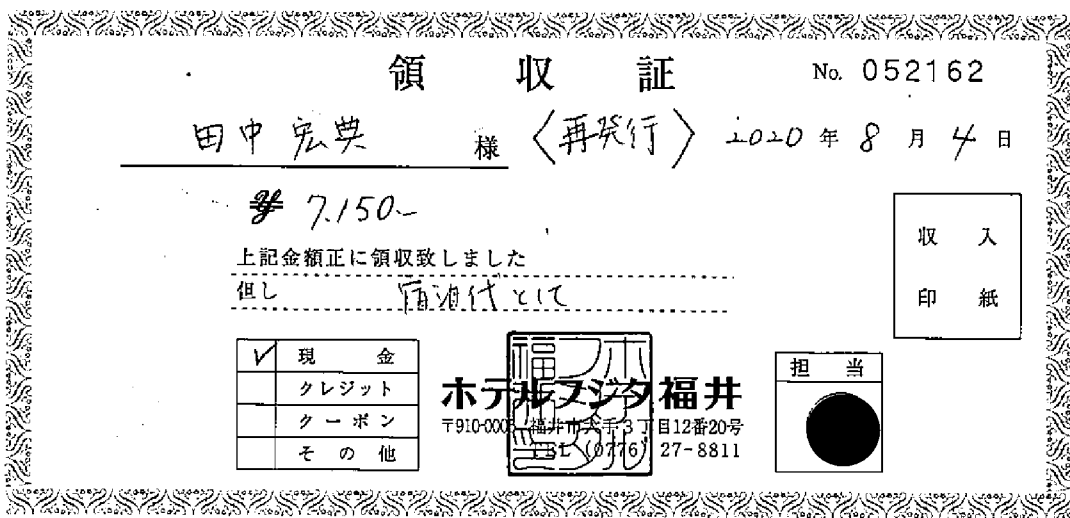 領収証 No. 052162
田中宏典 様 〈再発行〉 2020年8月4日
¥ 7.150.-
収入
印紙
上記金額正に領収致しました
但し 宿泊代として
✓ 現金
クレジット
クーポン
その他
ホテルフジタ福井
〒910-0005 福井市大手3丁目12番20号
TEL (0776) 27-8811
担当